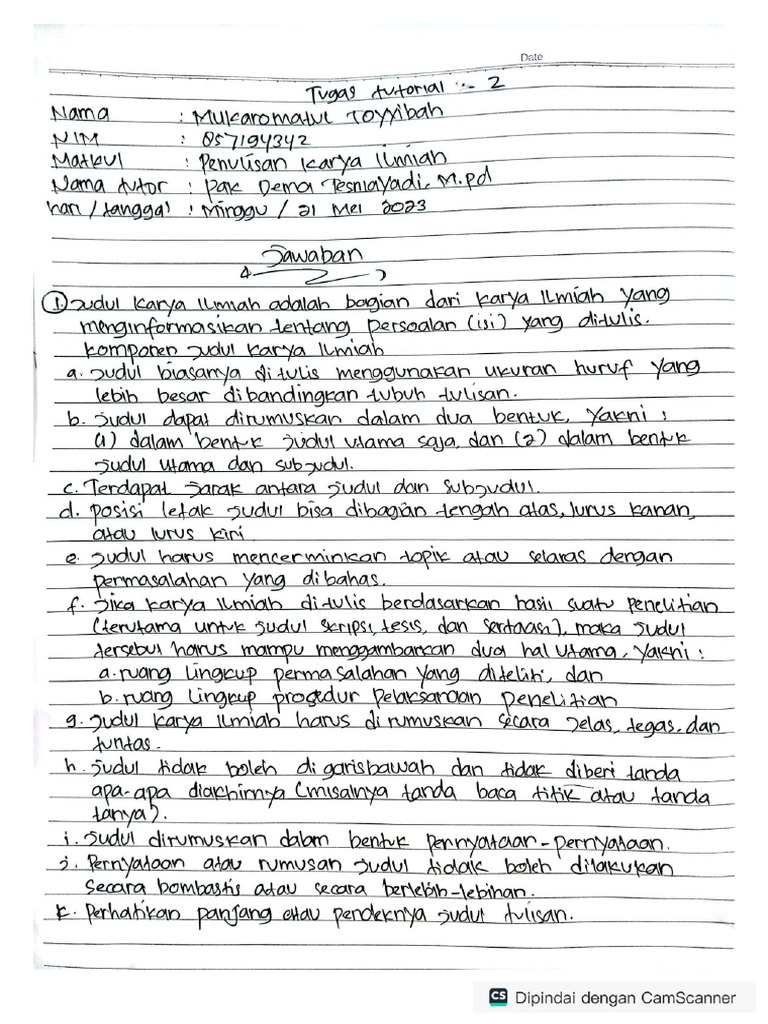 Date
Tugas tutorial :- 2
Nama : Mukaromatul Toyyibah
NIM : 857194342
Matkul : Penulisan Karya Ilmiah
Nama tutor : Pak Dema Tesniayadi, M.pd
hari / tanggal : Minggu / 21 Mei 2023
Jawaban
1. Judul karya ilmiah adalah bagian dari karya ilmiah yang
menginformasikan tentang persoalan (isi) yang ditulis.
komponen judul karya ilmiah
a. Judul biasanya ditulis menggunakan ukuran huruf yang
lebih besar dibandingkan tubuh tulisan.
b. Judul dapat dirumuskan dalam dua bentuk, yakni :
(1) dalam bentuk judul utama saja, dan (2) dalam bentuk
judul utama dan subjudul.
c. Terdapat jarak antara judul dan subjudul.
d. posisi letak judul bisa dibagian tengah atas, lurus kanan,
atau lurus kiri
e. Judul harus mencerminkan topik atau selaras dengan
permasalahan yang dibahas.
f. Jika karya ilmiah ditulis berdasarkan hasil suatu penelitian
(terutama untuk judul skripsi, tesis, dan sertaasi), maka judul
tersebut harus mampu menggambarkan dua hal utama, yakni :
a. ruang lingkup permasalahan yang diteliti, dan
b. ruang lingkup prosedur pelaksanaan penelitian
g. Judul karya ilmiah harus dirumuskan secara jelas, tegas, dan
tuntas.
h. Judul tidak boleh digarisbawah dan tidak diberi tanda
apa-apa diakhirnya (misalnya tanda baca titik atau tanda
tanya).
i. Judul dirumuskan dalam bentuk pennyataan-pernyataan.
j. Pernyataan atau rumusan judul tidak boleh dilakukan
secara bombastis atau secara berlebih-lebihan.
k. Perhatikan panjang atau pendeknya judul tulisan.
CS Dipindai dengan CamScanner